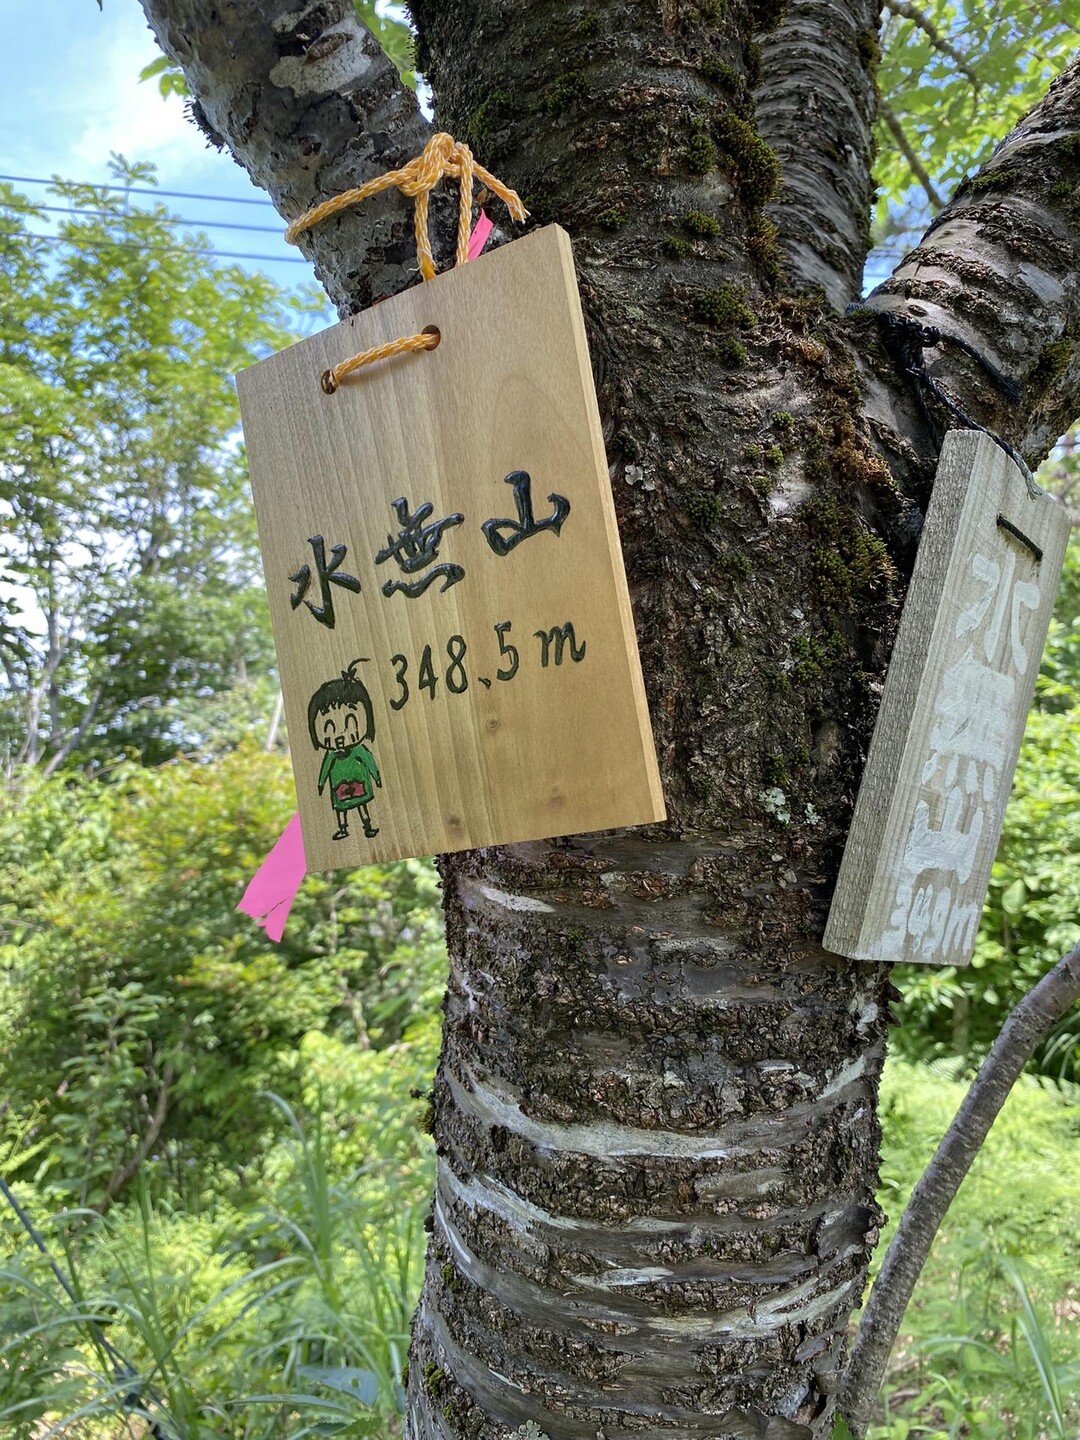 水無山
348.5m
水無山
349m